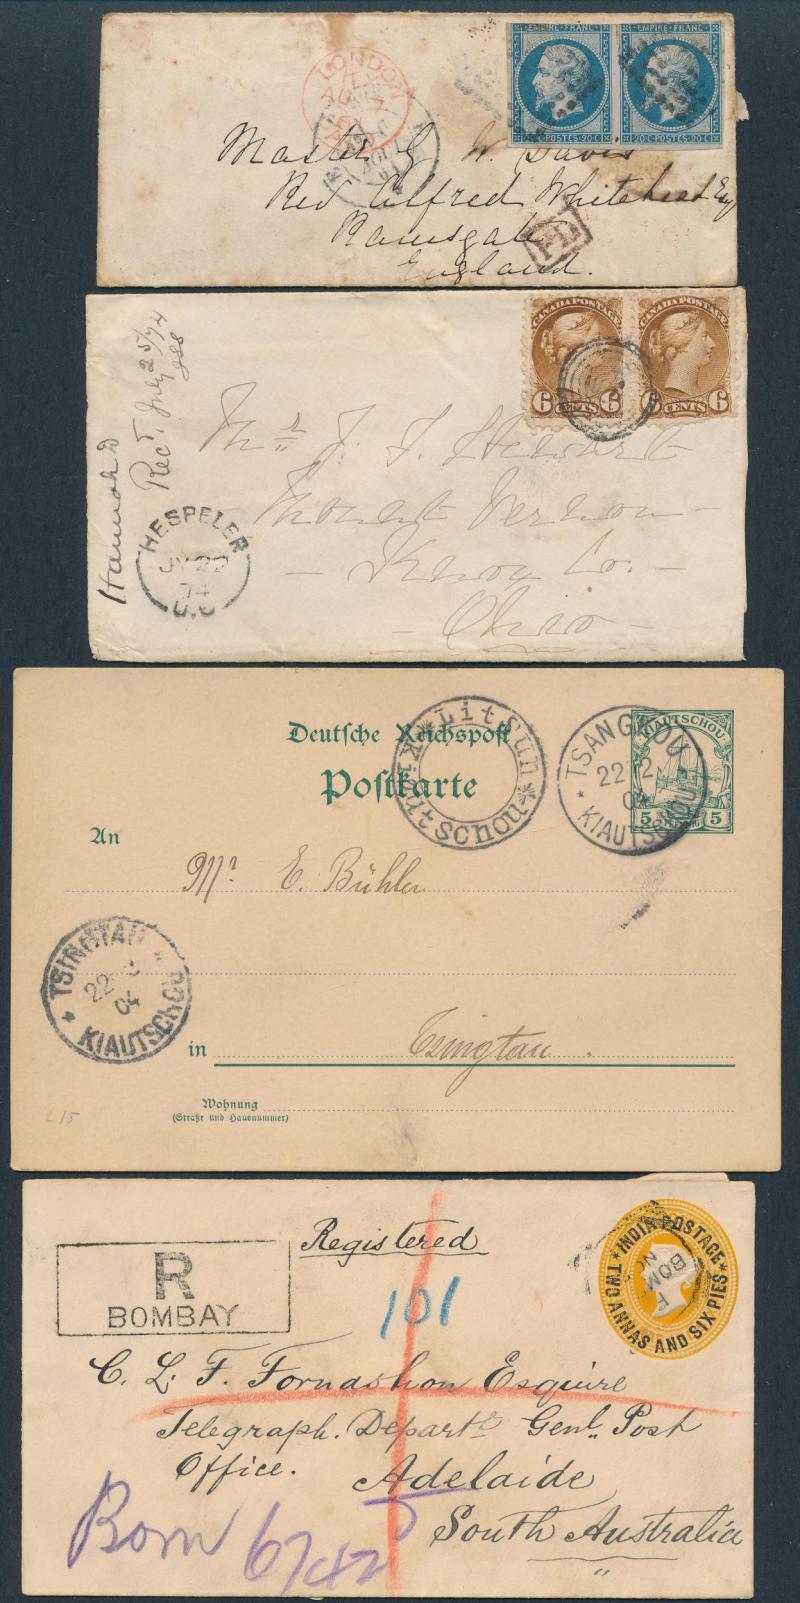 EMPIRE FRANC EMPIRE FRANC
POSTES 20 C 20 C POSTES 20 C
LONDON
Master G. W. Davis
Rev Alfred Whitehead Esq
Ramsgate
England.
CANADA POSTAGE CANADA POSTAGE
6 CENTS 6 6 CENTS 6
Recd. July 25/74
Hannah D
Mr J. F. Stewart
Mount Vernon
Knox Co.
Ohio
HESPELER
JY 22
74
U.C
Deutsche Reichspost
Postkarte
Litsun
Kiautschou
TSANGKOU
22 12
04
KIAUTSCHOU
KIAUTSCHOU
5 5
An
Mr. E. Bühler
TSINGTAU
22
04
KIAUTSCHOU
in Tsingtau.
Wohnung
(Straße und Hausnummer)
L15
Registered
R
BOMBAY
101
INDIA POSTAGE
TWO ANNAS AND SIX PIES
BOM
NO
C. L. F. Fornashon Esquire
Telegraph. Departt. Genl. Post
Office.
Adelaide
South Australia
Bom 6742